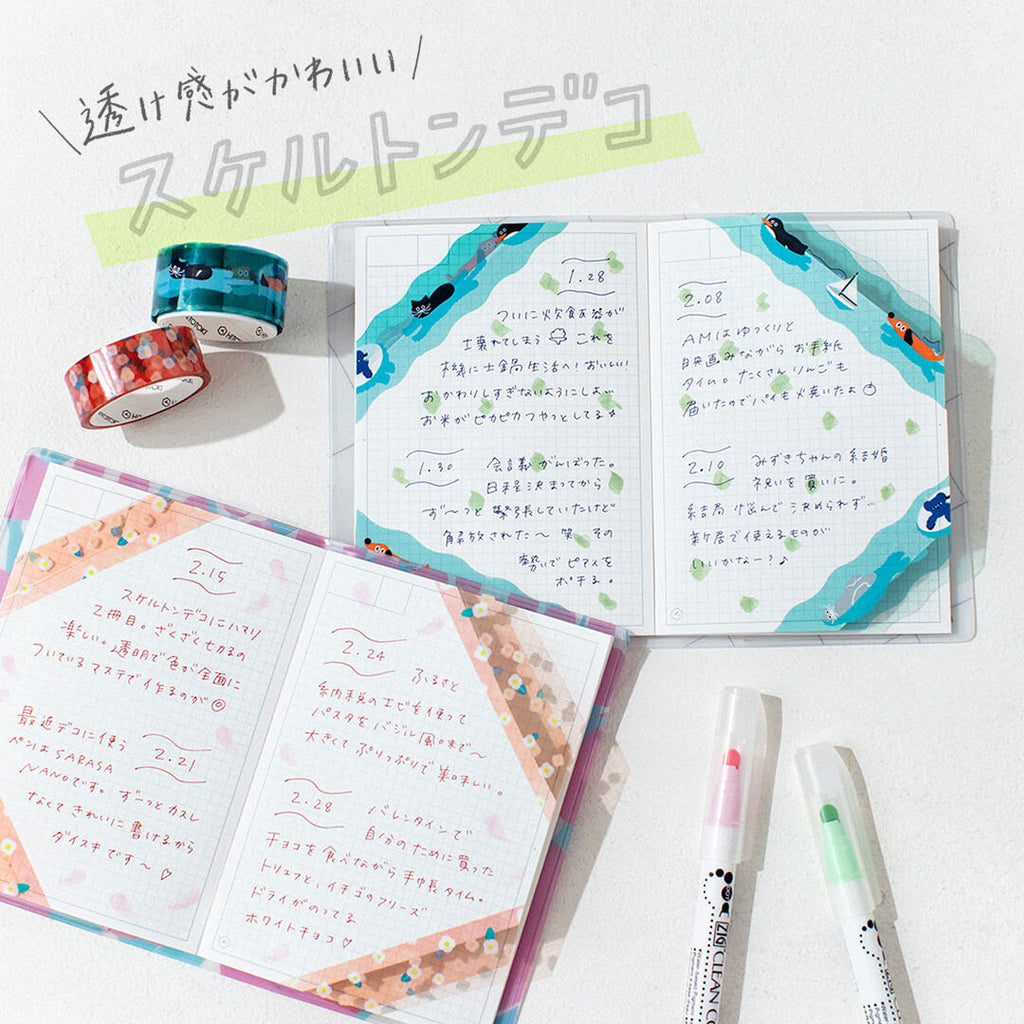 透け感がかわいい
スケルトンデコ
1.28
ついに炊飯器が
壊れてしまう これを
機に土鍋生活へ！おいしい！
おかわりしすぎないようにしよ…
お米がピカピカつやっとしてる
1.30
会議がんばった。
日程決まってから
ず〜っと緊張していたけど
解放された〜 笑 その
勢いでピアスを
ポチる。
2.08
AMはゆっくりと
映画みながら お手紙
タイム。たくさんりんごも
届いたのでパイも焼いたよ
2.10
みずきちゃんの結婚
祝いを買いに。
結局悩んで決められず…
新居で使えるものが
いいかなー？♪
2.15
スケルトンデコにハマり
2冊目。ざくざく七かるの
楽しい。透明で色が全面に
ついているマステで作るのが◎
最近デコに使う
ペンはSARASA
NANOです。ず〜っとカスレ
なくてきれいに書けるから
ダイスキです〜♡
2.21
2.24
ふるさと
納税のエビを使って
パスタをバジル風味で〜
大きくてぷりっぷりで美味しい。
2.28
バレンタインで
自分のために買った
チョコを食べながら手帳タイム。
トリュフと、イチゴのフリーズ
ドライがのってる
ホワイトチョコ♡
ZIG CLEAN CO